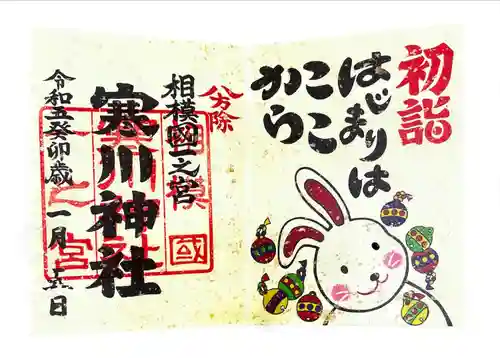 初詣
はじまりは
ここ
から
八方除
相模國一之宮
寒川神社
令和五癸卯歳 一月 日
相模國
一之宮